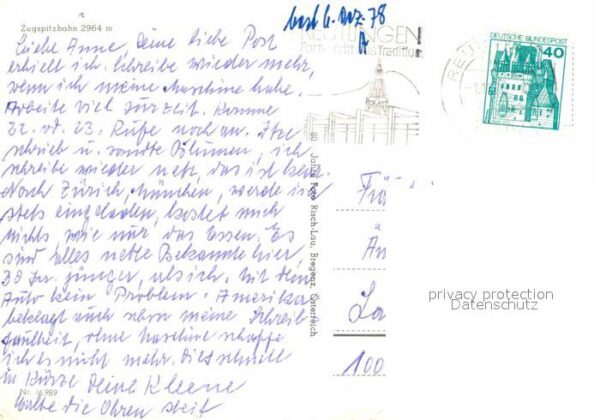 Zugspitzbahn 2964 m
best 6. Dez. 78
REUTLINGEN
Fortschritt aus Tradition
DEUTSCHE BUNDESPOST
40
Liebe Anne, Deine liebe Post
erhielt ich. Schreibe wieder mehr,
wenn ich meine Maschine habe.
Arbeite viel zur Zeit. Komme
22. od. 23. Rufe noch an.
schrieb u. sandte Blumen, ich
schreibe wieder nett, das ist
Nach Zürich, München, werde ich
stets eingeladen, kostet mich
nichts, wie nur das Essen. Es
sind alles nette Bekannte hier,
30 jünger, als ich. Mit dem
Auto kein Problem. Amerika
beklagt auch schon meine Schreib
faulheit, ohne Maschine schaffe
ich es nicht mehr. Dies schnell
in Kürze Deine Kleene
Halte die Ohren steif
Nr. 16.989
80 Jahre Foto Risch-Lau, Bregenz, Österreich
100
privacy protection
Datenschutz